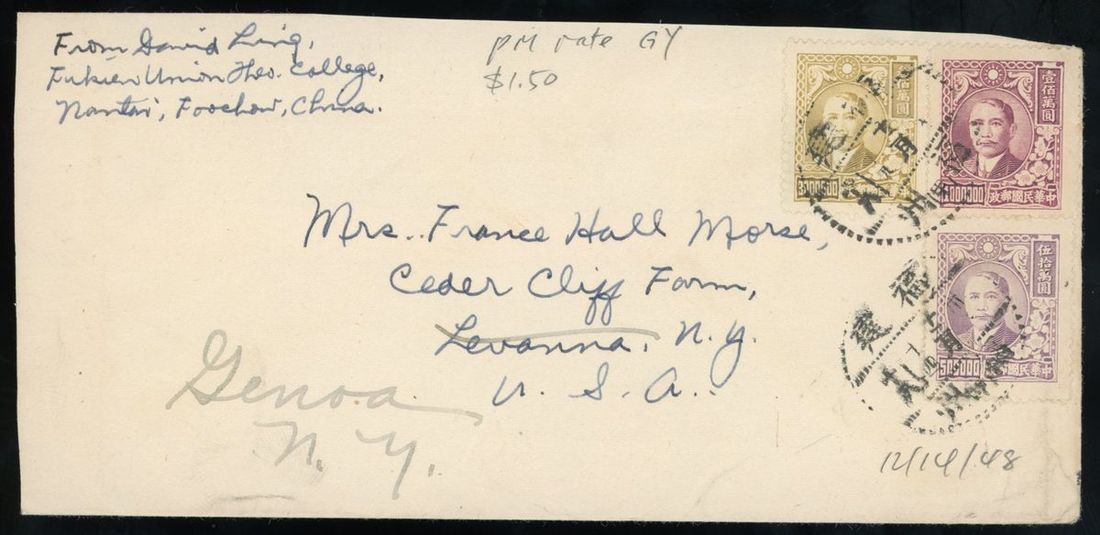 From David Ling,
Fukien Union Theo. College,
Nantai, Foochow, China.
PM rate GY
$1.50
壹佰萬圓
中華民國郵政
伍拾萬圓
500000
中華民國郵政
福建
Mrs. France Hall Morse,
Ceder Cliff Farm,
Levanna, N.Y.
U.S.A.
Genoa
N.Y.
12/14/48